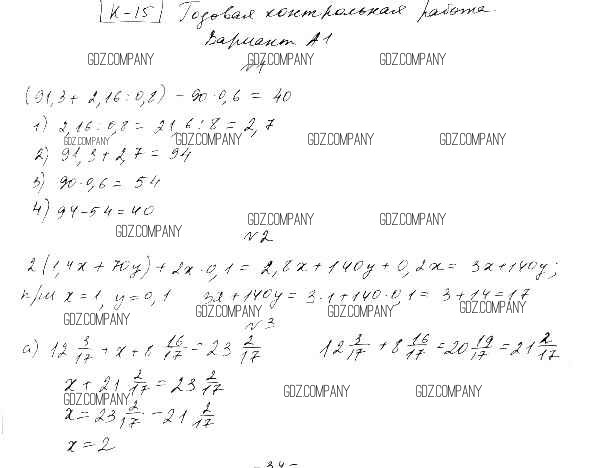 К-15 Годовая контрольная работа.
Вариант А1
GDZ.COMPANY GDZ.COMPANY GDZ.COMPANY
№1
(91,3 + 2,16 : 0,8) - 90 · 0,6 = 40
1) 2,16 : 0,8 = 21,6 : 8 = 2,7
GDZ.COMPANY GDZ.COMPANY GDZ.COMPANY GDZ.COMPANY
2) 91,3 + 2,7 = 94
3) 90 · 0,6 = 54
4) 94 - 54 = 40
GDZ.COMPANY GDZ.COMPANY
GDZ.COMPANY
№2
2(1,4x + 70y) + 2x · 0,1 = 2,8x + 140y + 0,2x = 3x + 140y;
при x = 1, y = 0,1 3x + 140y = 3 · 1 + 140 · 0,1 = 3 + 14 = 17
GDZ.COMPANY GDZ.COMPANY GDZ.COMPANY GDZ.COMPANY
№3
а) 12 3/17 + x + 8 16/17 = 23 2/17 12 3/17 + 8 16/17 = 20 19/17 = 21 2/17
x + 21 2/17 = 23 2/17
GDZ.COMPANY GDZ.COMPANY GDZ.COMPANY
x = 23 2/17 - 21 2/17
x = 2
- 34 -